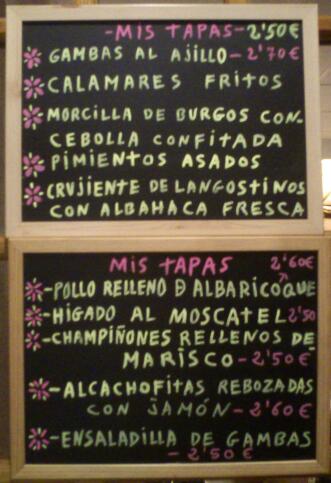 -MIS TAPAS-2'50€
GAMBAS AL AJILLO-2'70€
CALAMARES FRITOS
MORCILLA DE BURGOS CON-
CEBOLLA CONFITADA
PIMIENTOS ASADOS
CRUJIENTE DE LANGOSTINOS
CON ALBAHACA FRESCA
MIS TAPAS 2'60€
-POLLO RELLENO D ALBARICOQUE
-HIGADO AL MOSCATEL 2'50
-CHAMPIÑONES RELLENOS DE
MARISCO-2'50€
-ALCACHOFITAS REBOZADAS
CON JAMÓN-2'60€
-ENSALADILLA DE GAMBAS
-2'50€